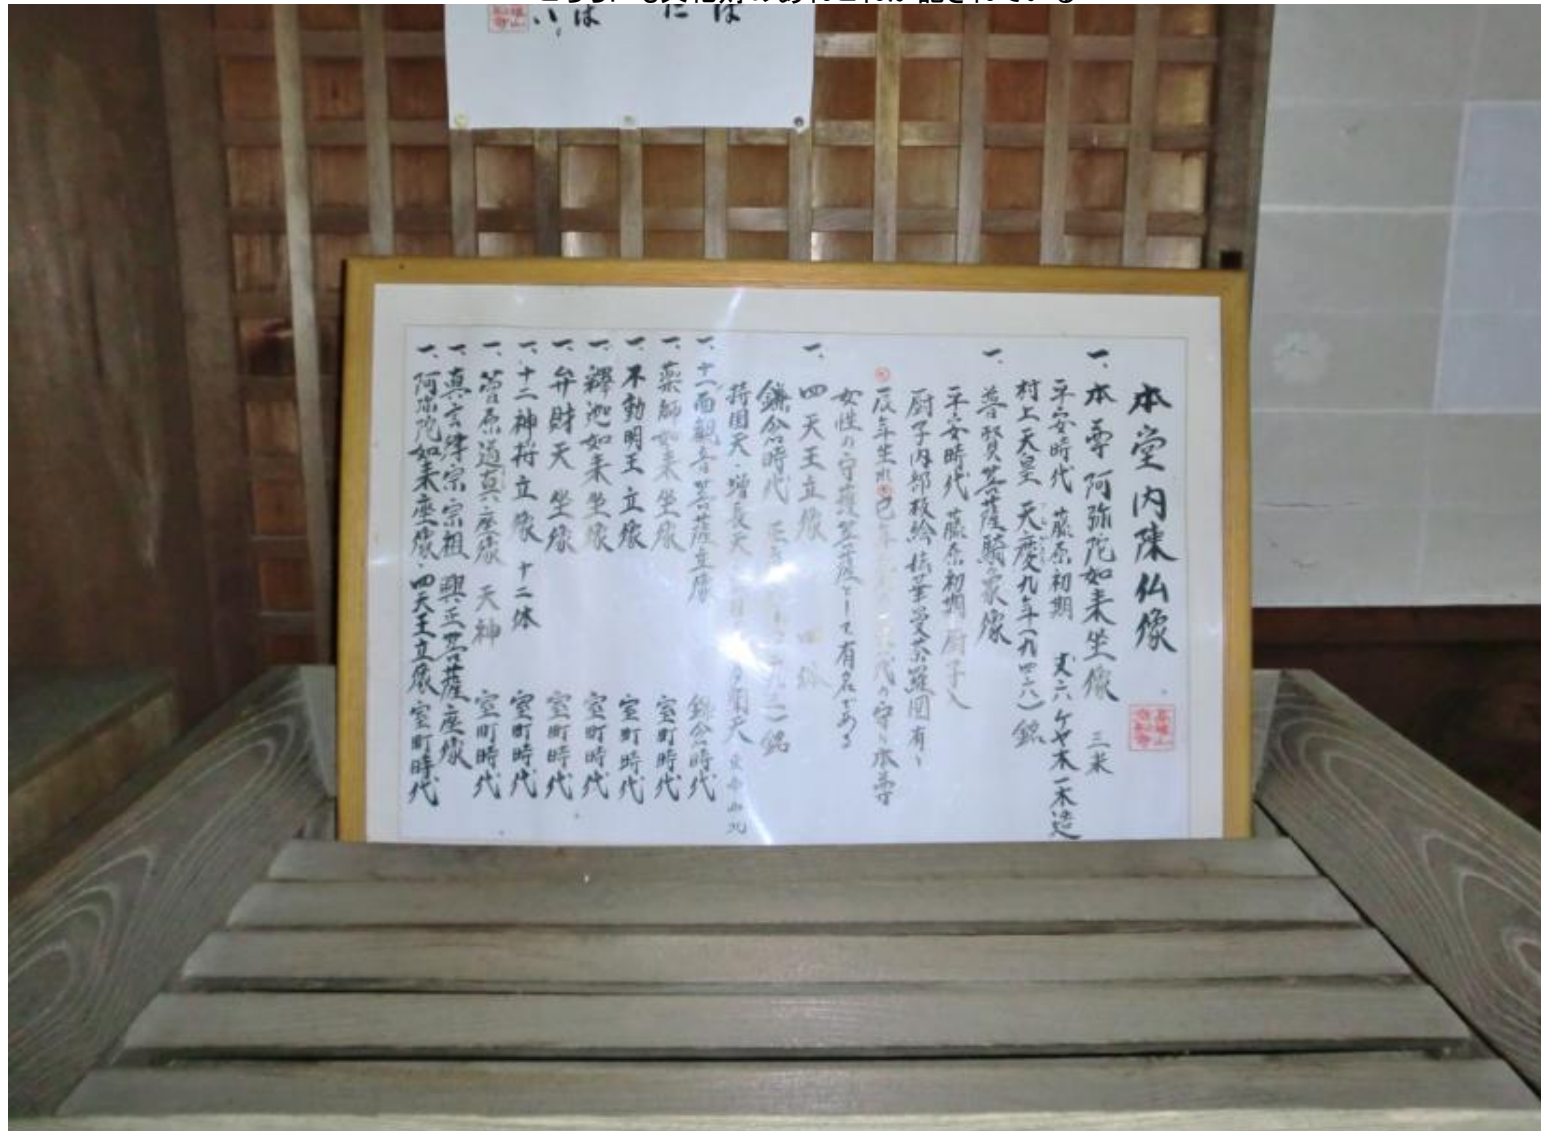 本堂内陣仏像
一、本尊 阿弥陀如来坐像 三米
平安時代 藤原初期 丈六ケヤ木一木造
村上天皇 天慶九年(九四六)銘
一、普賢菩薩騎象像
平安時代 藤原初期 厨子入
厨子内部板絵 法華曼荼羅図有り
辰年生れ 巳年 代の守り本尊
女性の守護菩薩として有名である
一、四天王立像 四体
鎌倉時代 銘
持国天・増長天 天
一、十一面観音菩薩立像 鎌倉時代
一、薬師如来坐像 室町時代
一、不動明王立像 室町時代
一、釋迦如来坐像 室町時代
一、弁財天坐像 室町時代
一、十二神将立像 十二体 室町時代
一、菅原道真座像 天神 室町時代
一、真言律宗宗祖 興正菩薩座像
一、阿弥陀如来座像・四天王立像 室町時代